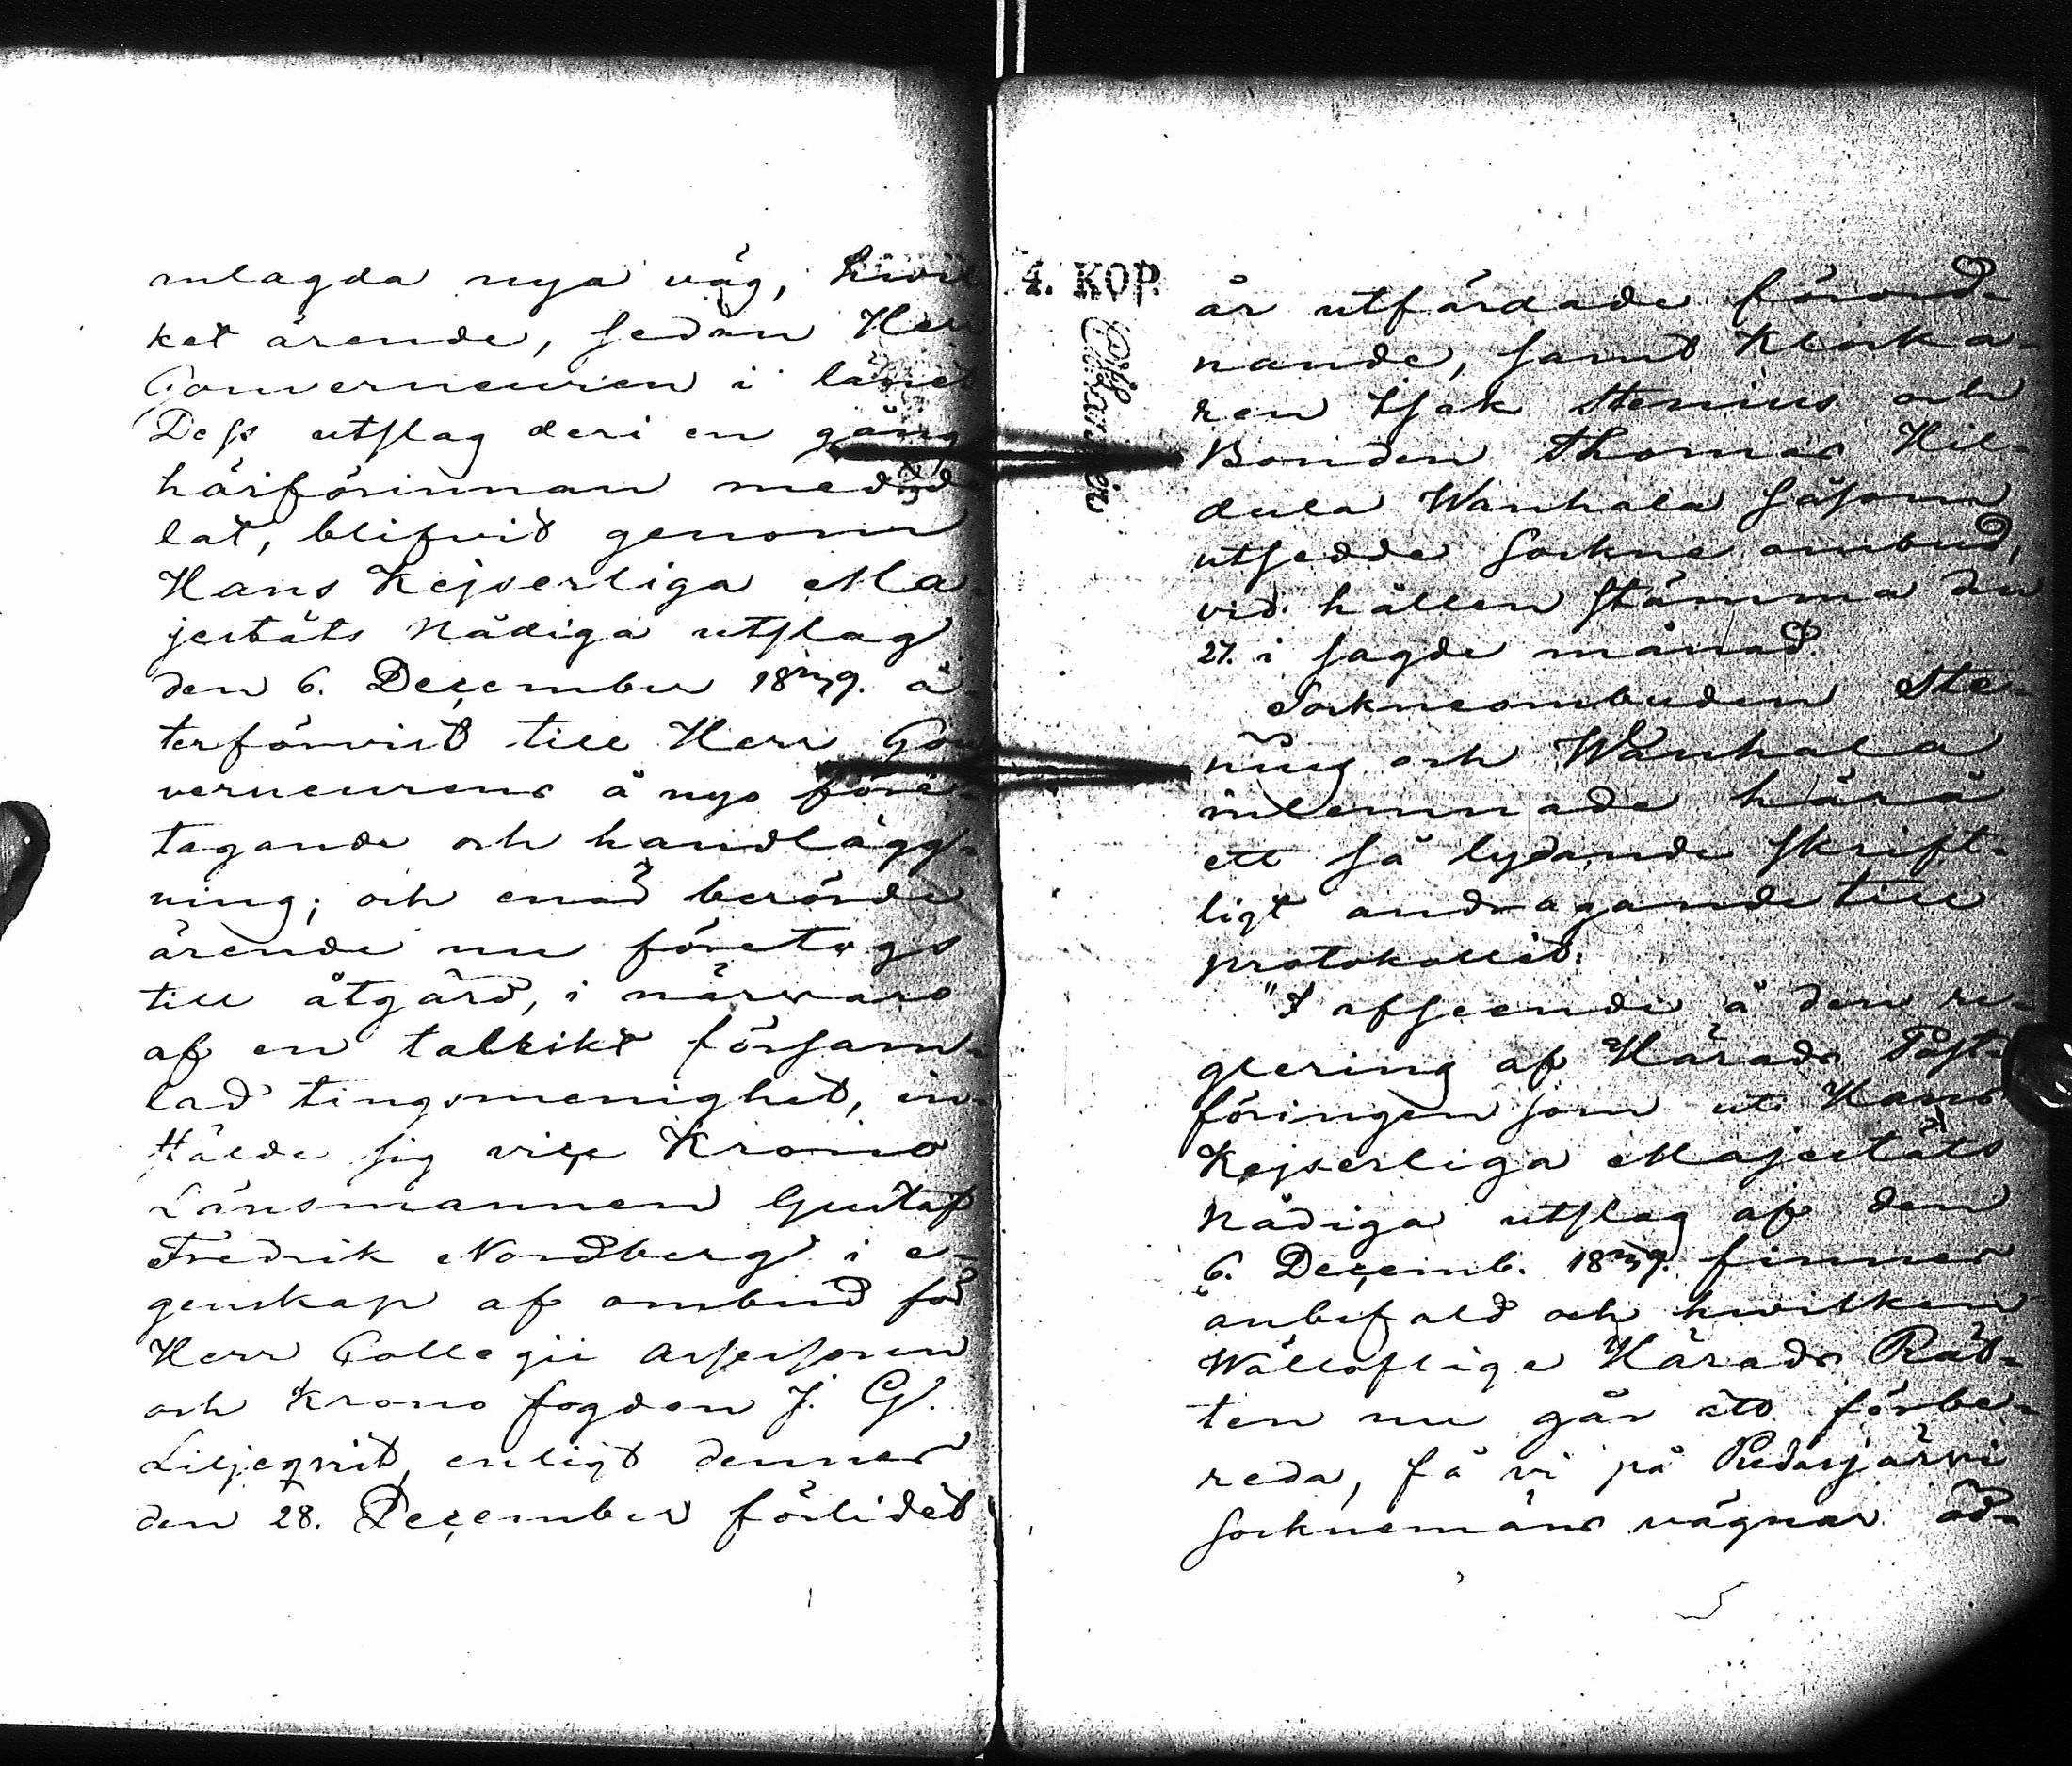 mlagda nya väg, hwil
ket ärende, sedan Herr
Gouverneuren i länet
Dess utslag deri en gång
härförinnan meddd
lat, blifvit genom
Hans Kejserliga Ma-
jestäts Nådiga utslag
den 6. December 1839. å-
terförvist till Herr Gou
verneurens å nyo före-
tagande och handlägg-
ning; och emad berörde
ärende nu företogs
till åtgärd, i närvaro
af en talrikt försam-
lad tingsmenighet, in-
stälde sig vice Krono
Länsmannen Gustaf
Fredrik Nordberg i e-
genskap af ombud för
Herr Collegii Assessoren
och Krono fogden J. G.
Liljeqvist, enligt dennes
den 28. December förlidet
4. KOP.
år utfärdade förord-
nande, samt Klocka-
ren Isak Stenius och
Bonden Thomas Hil-
dula Wanhala såsom
utsedde Sockne ombud,
vid hållen Stämma den
27. i sagde månad.
Sockneombuden Ste-
nius och Wanhala
inlemnade härå
ett så lydande skrift-
ligt andragande till
protokollet:
"I afseende å den re-
glering af Härads Påst-
föringen som uti Hans
Kejserliga Majestäts
Nådiga utslag af den
6. Decemb. 1839. finnes
anbefald och hwilken
Wällofliga Härads Rät-
ten nu går att förbe-
reda, få vi på Pudasjärvi
Socknemäns vägnar öd-